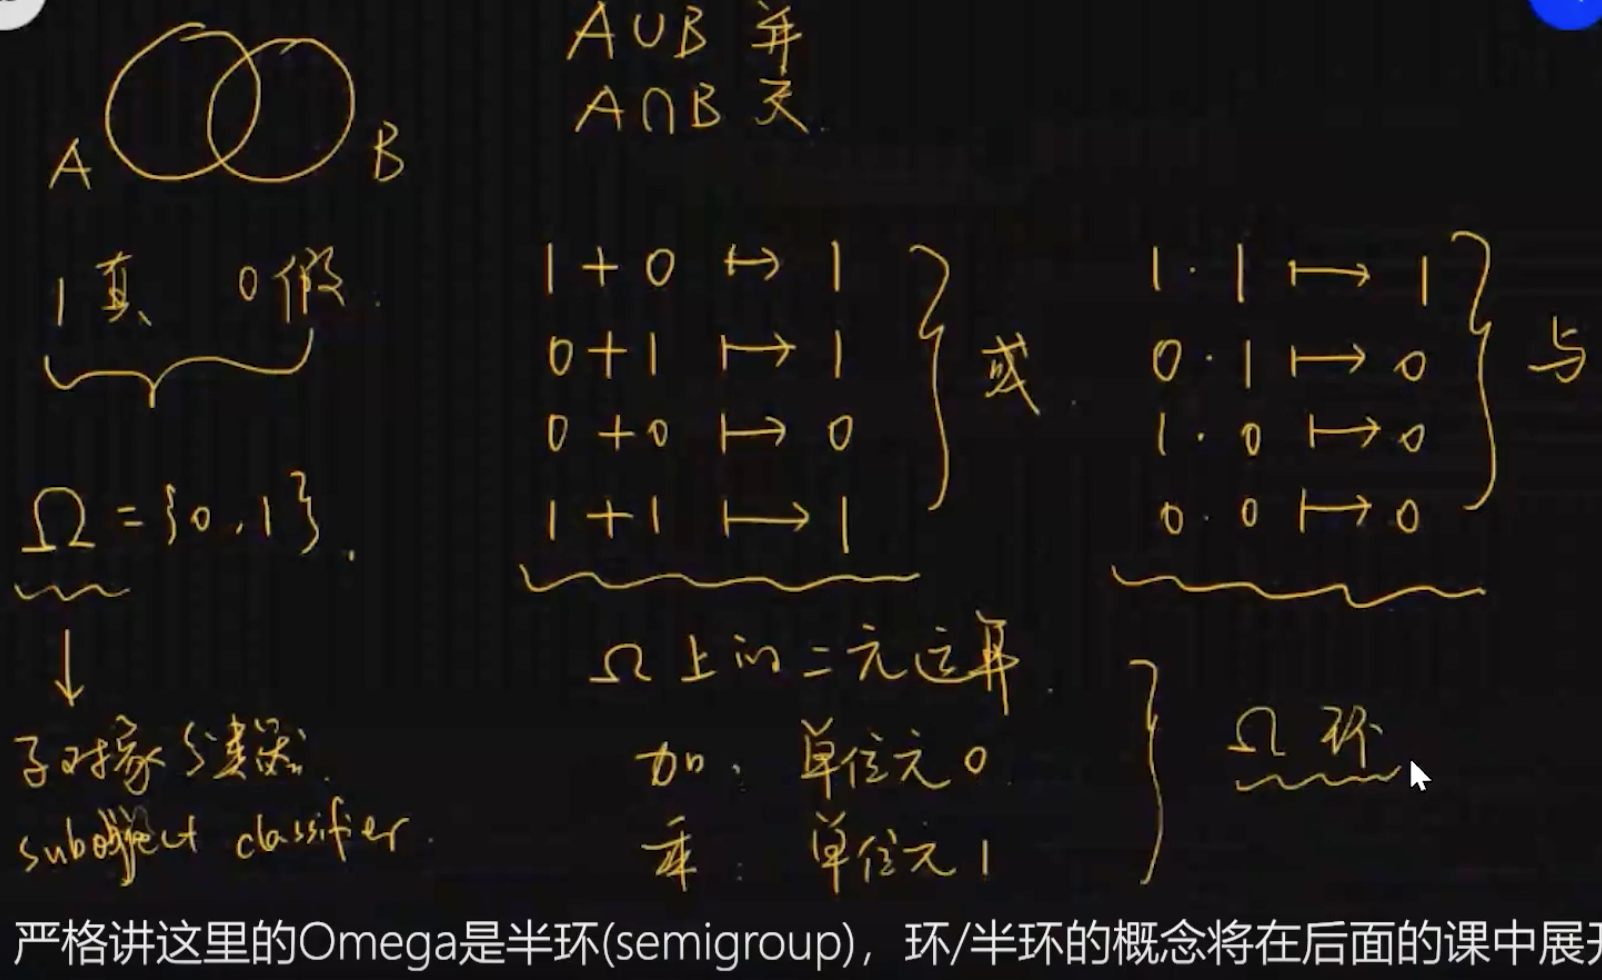 A∪B 并
A∩B 交
A B
1 真 0 假
Ω = {0, 1}.
子对象分类器
subobject classifier.
1 + 0 ↦ 1
0 + 1 ↦ 1
0 + 0 ↦ 0
1 + 1 ↦ 1
或
1 · 1 ↦ 1
0 · 1 ↦ 0
1 · 0 ↦ 0
0 · 0 ↦ 0
与
Ω 上的二元运算
加: 单位元 0
乘: 单位元 1
Ω 环
严格讲这里的Omega是半环(semigroup)，环/半环的概念将在后面的课中展开